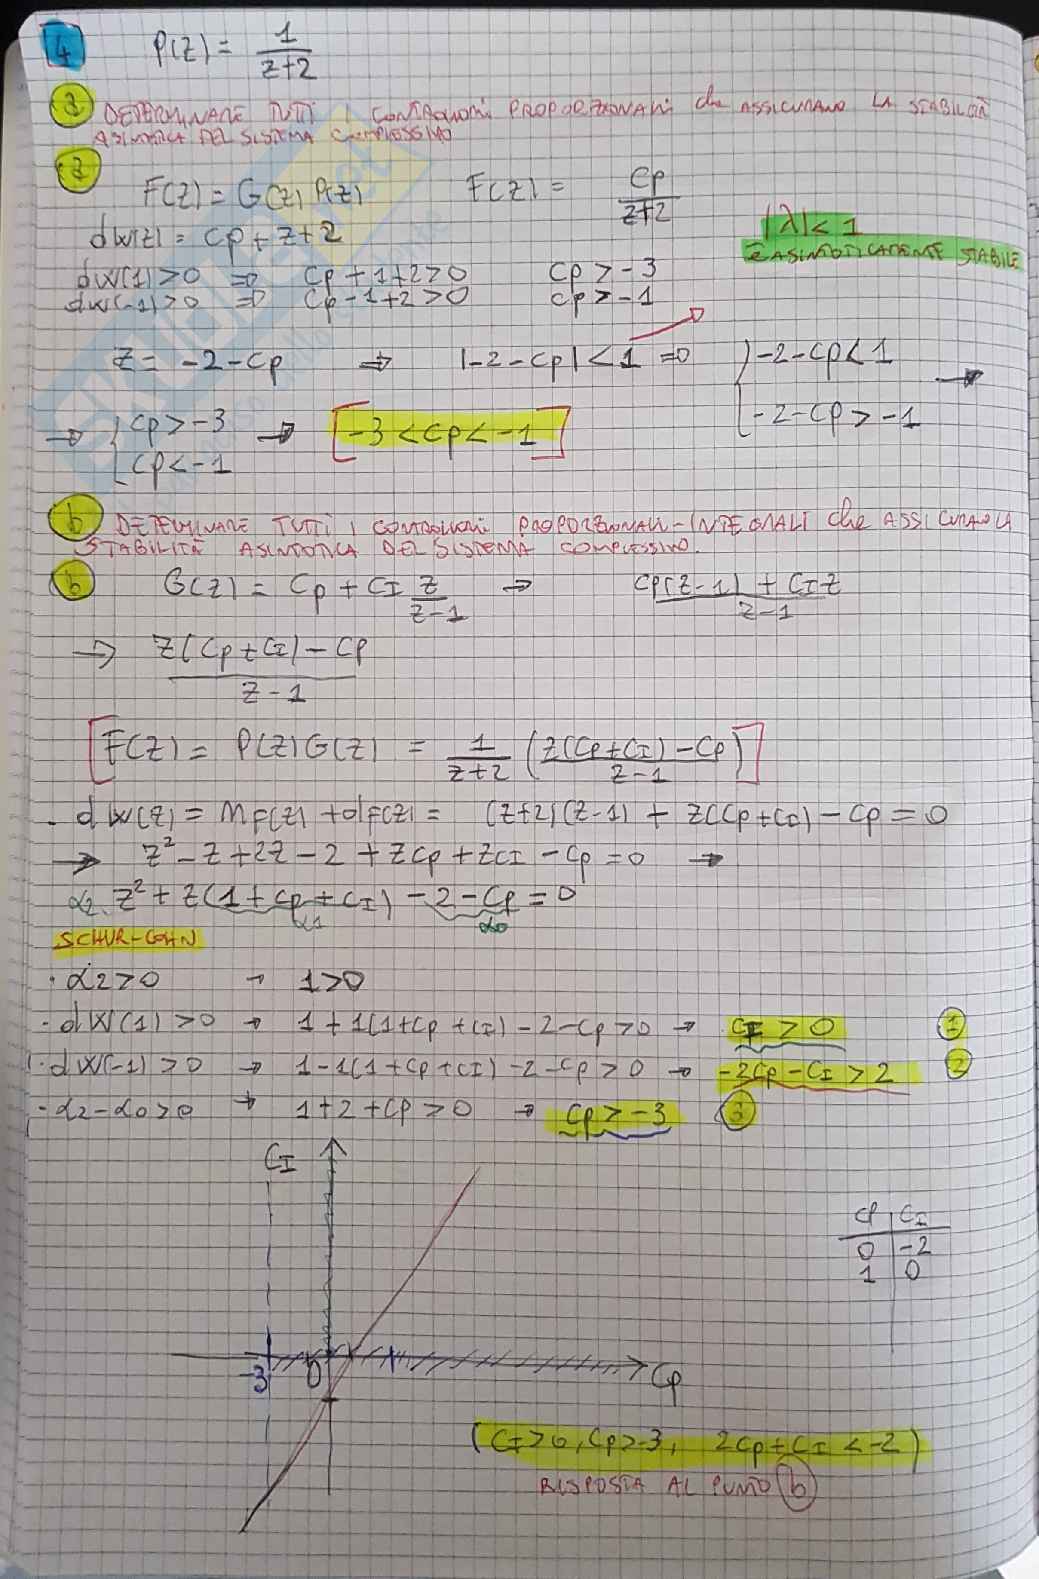 4 P(z) = 1/(z+2)
a DETERMINARE TUTTI I CONTROLLORI PROPORZIONALI che ASSICURANO LA STABILITÀ
ASINTOTICA DEL SISTEMA COMPLESSIVO
a
F(z) = G(z) P(z) F(z) = Cp/(z+2)
dW(z) = Cp + z + 2 |λ| < 1
È ASINTOTICAMENTE STABILE
dW(1) > 0 ⇒ Cp + 1 + 2 > 0 Cp > -3
dW(-1) > 0 ⇒ Cp - 1 + 2 > 0 Cp > -1
z = -2 - Cp ⇒ |-2 - Cp| < 1 ⇒ { -2 - Cp < 1
-2 - Cp > -1 →
→ { Cp > -3
Cp < -1 → [-3 < Cp < -1]
b DETERMINARE TUTTI I CONTROLLORI PROPORZIONALI-INTEGRALI che ASSICURANO LA
STABILITÀ ASINTOTICA DEL SISTEMA COMPLESSIVO.
b G(z) = Cp + CI z/(z-1) → (Cp(z-1) + CI z)/(z-1)
→ (z(Cp + CI) - Cp)/(z-1)
[F(z) = P(z) G(z) = 1/(z+2) (z(Cp+CI) - Cp)/(z-1)]
- dW(z) = MF(z) + dF(z) = (z+2)(z-1) + z(Cp+CI) - Cp = 0
→ z² - z + 2z - 2 + zCp + zCI - Cp = 0 →
α2 z² + z(1 + Cp + CI) - 2 - Cp = 0
α1 α0
SCHUR-COHN
· α2 > 0 → 1 > 0
- dW(1) > 0 → 1 + 1(1 + Cp + CI) - 2 - Cp > 0 → CI > 0 1
· dW(-1) > 0 → 1 - 1(1 + Cp + CI) - 2 - Cp > 0 → -2Cp - CI > 2 2
- α2 - α0 > 0 → 1 + 2 + Cp > 0 → Cp > -3 3
CI
Cp CI
0 -2
1 0
-3 0 Cp
(CI > 0, Cp > -3, 2Cp + CI < -2)
RISPOSTA AL PUNTO b
SKUOLA.net